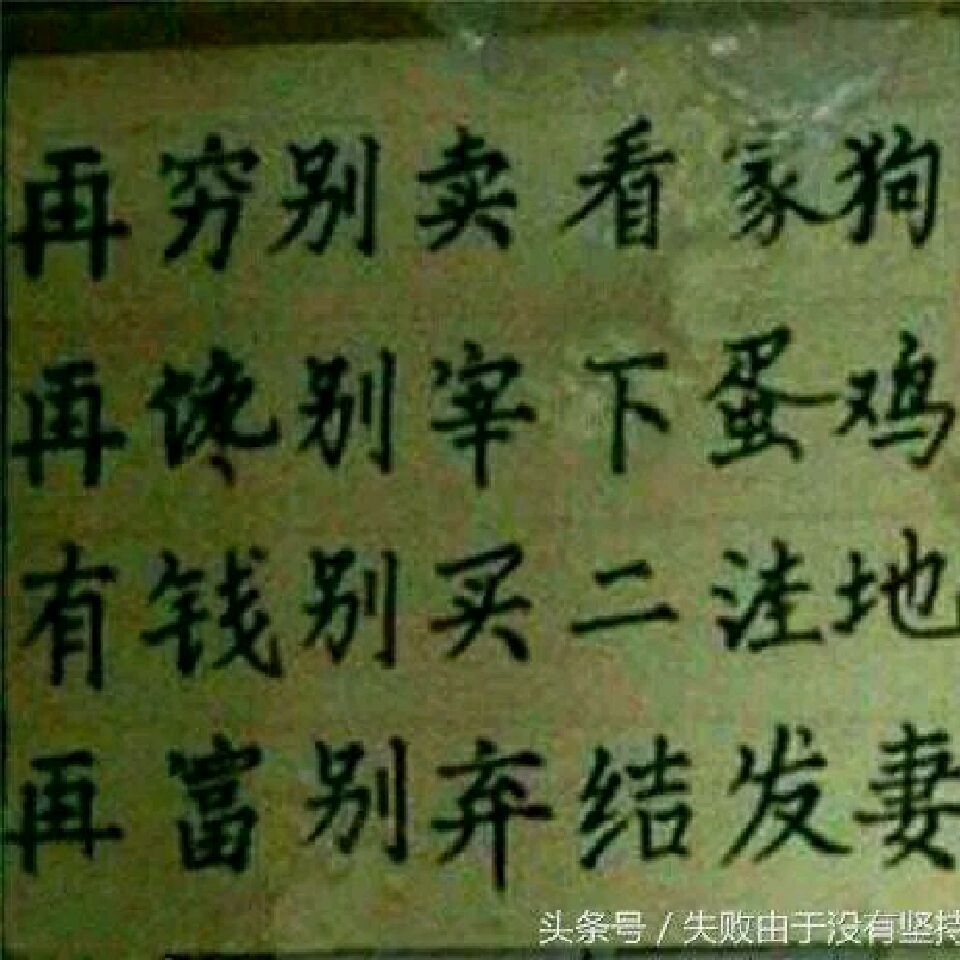 再穷别卖看家狗
再馋别宰下蛋鸡
有钱别买二洼地
再富别弃结发妻
头条号 / 失败由于没有坚持